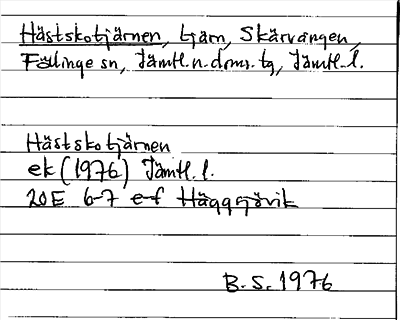 Hästskotjärnen, tjärn, Skärvången,
Föllinge sn, Jämtl.n.doms.tg, Jämtl.l.
Hästskotjärnen
ek (1976) Jämtl.l.
20E 6-7 e-f Häggsjövik
B.S. 1976